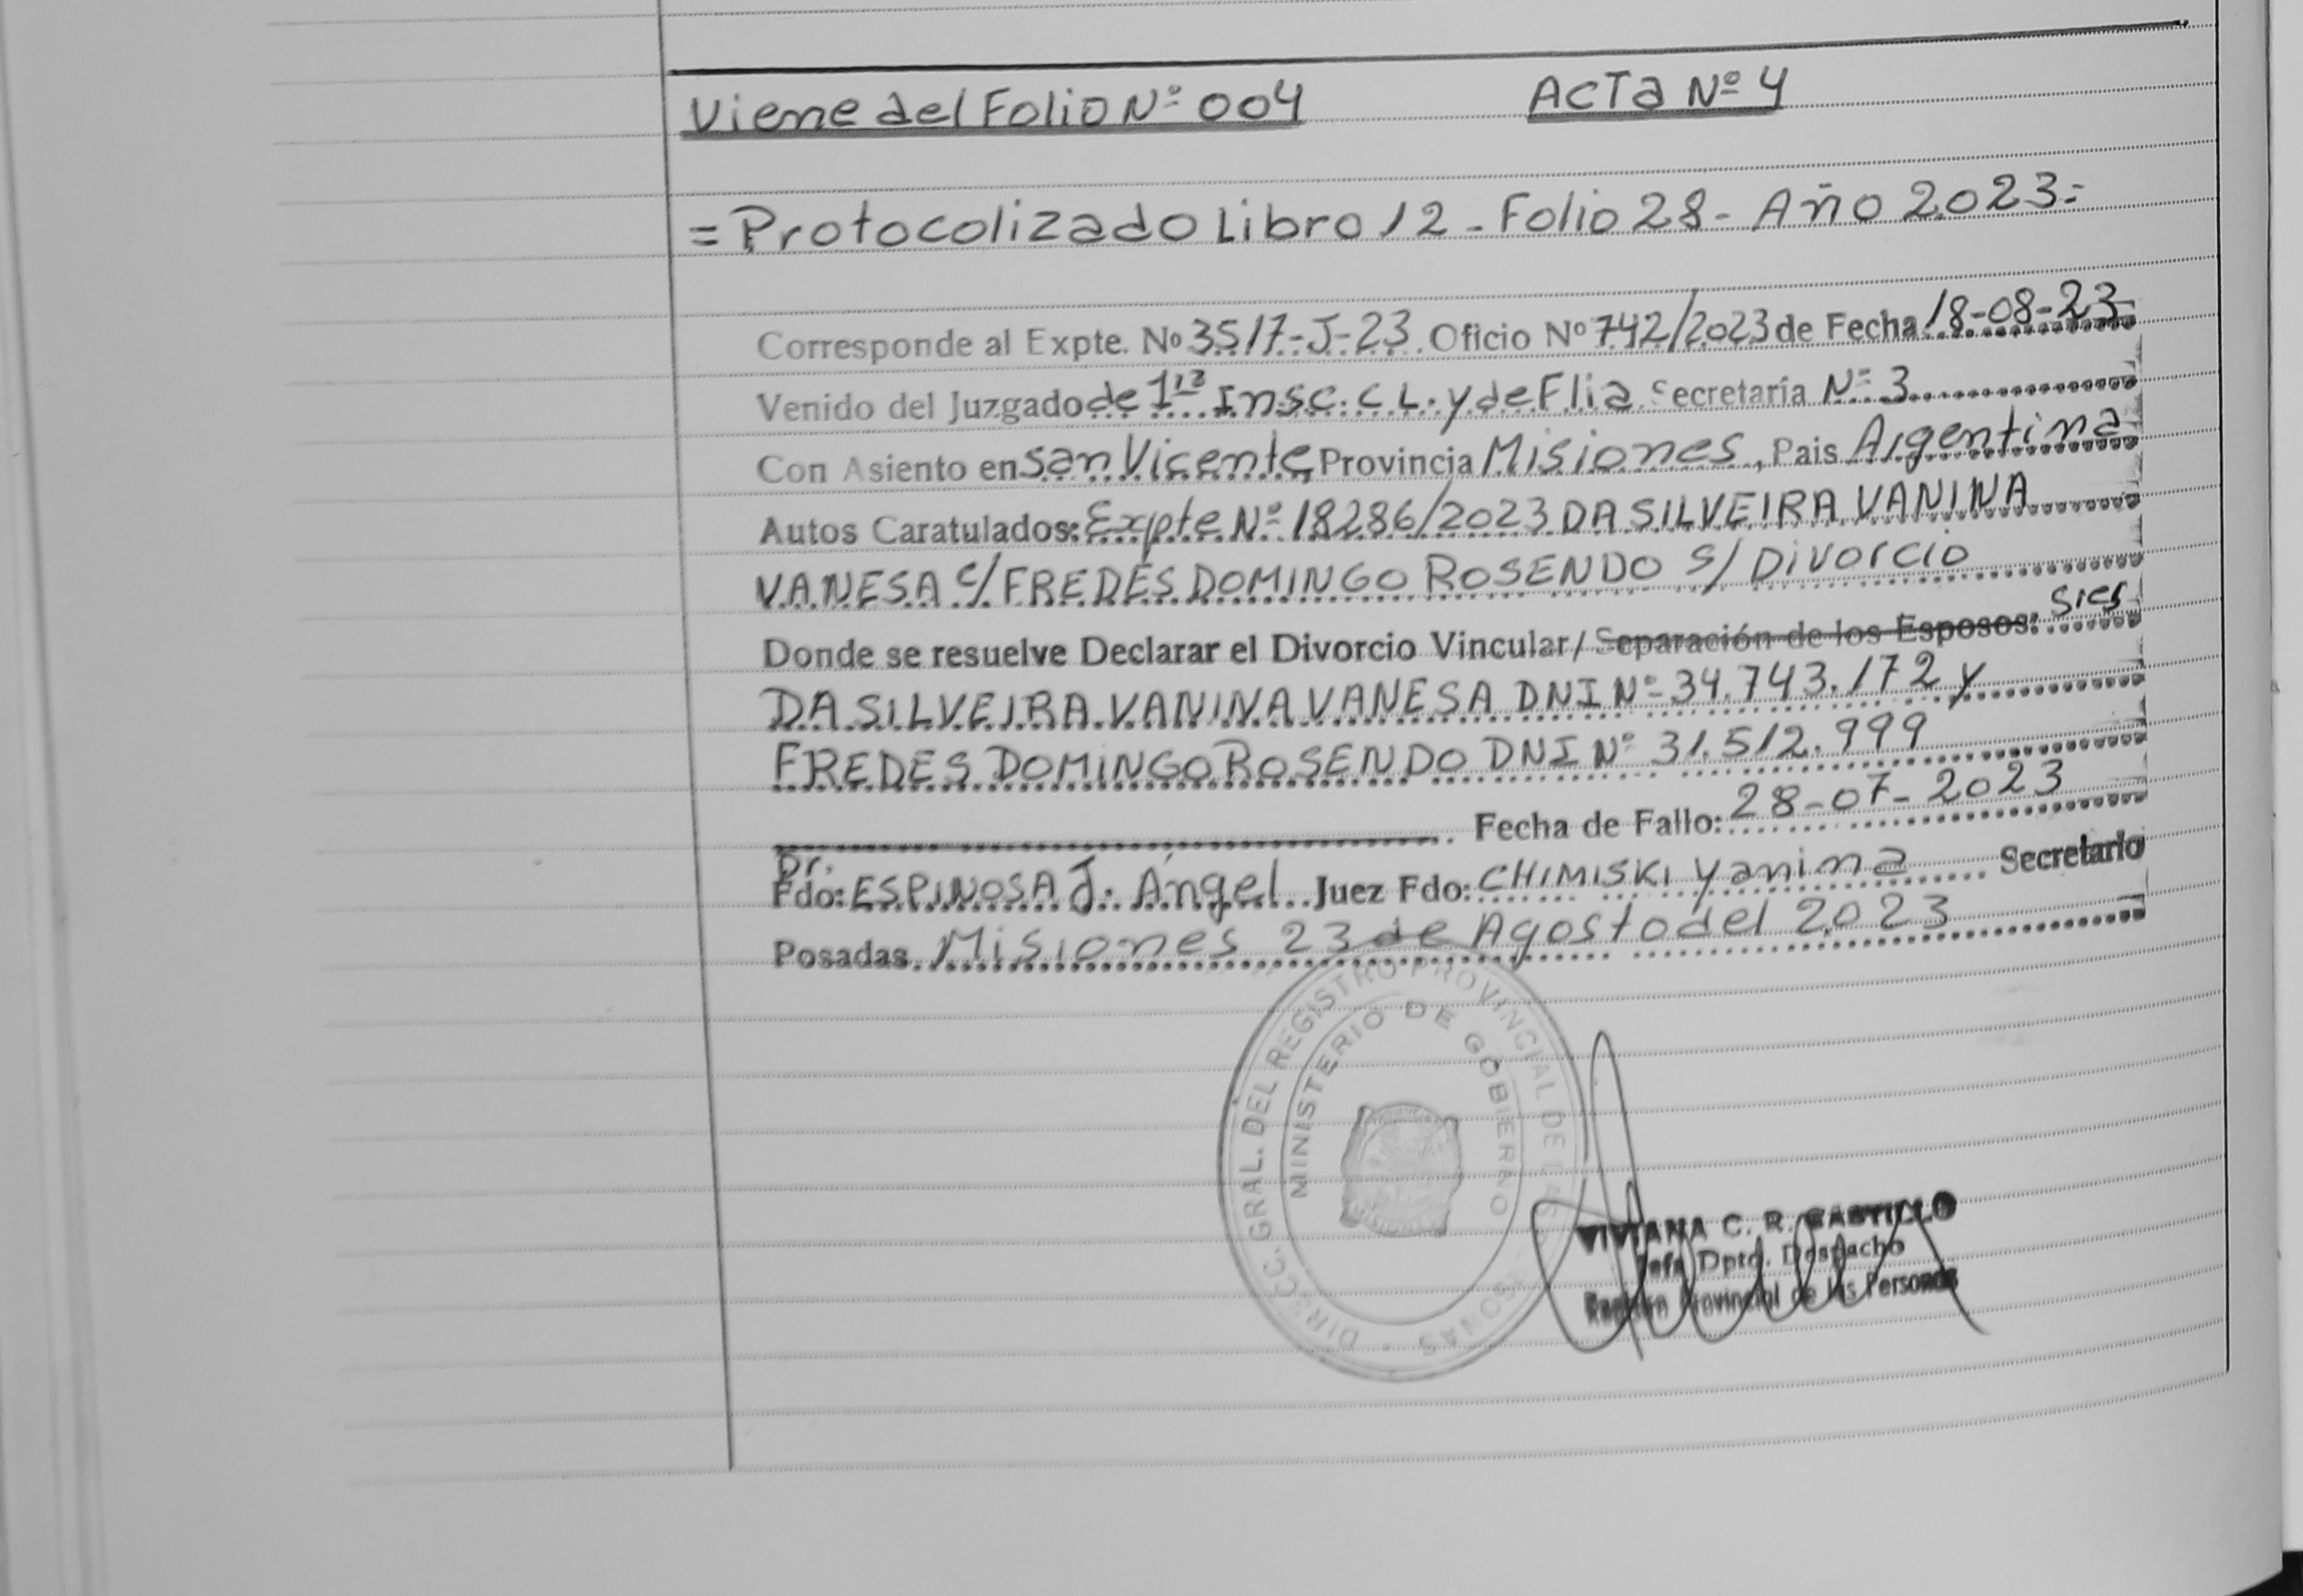 Viene del Folio Nº 004 ACTa Nº 4
= Protocolizado Libro 12 - Folio 28 - Año 2023=
Corresponde al Expte. Nº 3517-J-23 Oficio Nº 742/2023 de Fecha 18-08-23
Venido del Juzgado de 1ra Insc. C L. y de Flia Secretaría Nº 3
Con Asiento en San Vicente, Provincia Misiones, Pais Argentina
Autos Caratulados: Expte Nº 18286/2023 DA SILVEIRA VANINA
VANESA c/ FREDES DOMINGO ROSENDO S/ Divorcio
Donde se resuelve Declarar el Divorcio Vincular/ Separación de los Esposos: Sres
DA SILVEIRA VANINA VANESA DNI Nº 34.743.172 y
FREDES DOMINGO ROSENDO DNI Nº 31.512.999
Fecha de Fallo: 28-07-2023
Dr.
Fdo: ESPINOSA J. Angel Juez Fdo: CHIMISKI Yanina Secretario
Posadas, Misiones 23 de Agosto del 2023
DIRECC. GRAL. DEL REGISTRO PROVINCIAL DE LAS PERSONAS
MINISTERIO DE GOBIERNO
VIVIANA C. R. CASTILLO
Jefa Dpto. Despacho
Registro Provincial de las Personas